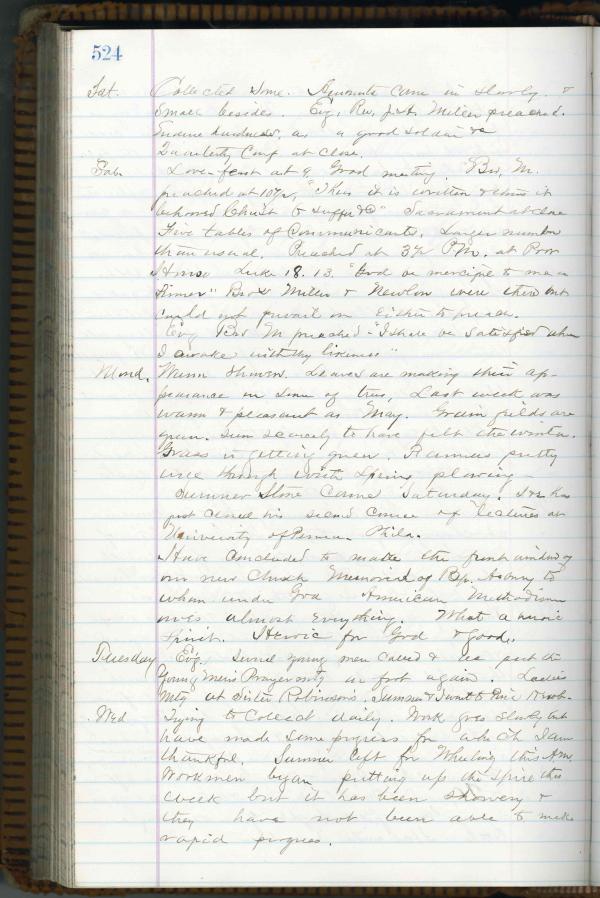 524
Sat. Collected some. Amounts came in slowly &
small besides. Evg. Rev. J. A. Miller preached.
Endure hardness, as a good soldier &c
Quarterly Conf. at close.
Sab. Love-feast at 9 Good meeting. Bro. M.
preached at 10 1/2, "Thus it is written & thus it
behooved Christ to suffer &c" Sacrament at close
Five tables of Communicants. Larger number
than usual. Preached at 3 1/2 P.M. at Poor
House Luke 18.13. "God be merciful to me a
sinner" Bros Miller & Newlon were there but
could not prevail on either to preach.
Evg Bro M preached - "I shall be satisfied when
I awake with thy likeness"
Mond. Warm showers. Leaves are making their ap-
pearance on some of trees, Last week was
warm & pleasant as May. Grain fields are
green. Seem scarcely to have felt the winter.
Grass is getting green. Farmers pretty
well through with spring plowing.
Sumner Stone came Saturday. He has
just closed his second course of lectures at
University of Penna. Phila.
Have concluded to make the front window of
our new Church Memorial of Bp. Asbury to
whom under God American Methodism
owes almost everything. What a heroic
spirit. Heroic for God & good.
Tuesday Evg. Several young men called & we put the
Young Men's Prayer mtg on foot again. Ladies
Mtg at Sister Robinson's. Sumner & I went to
Wed Trying to collect daily. Work goes slowly but
have made some progress for which I am
thankful. Sumner left for Wheeling this A.M.
Workmen began putting up the spire this
week but it has been showery &
they have not been able to make
rapid progress.